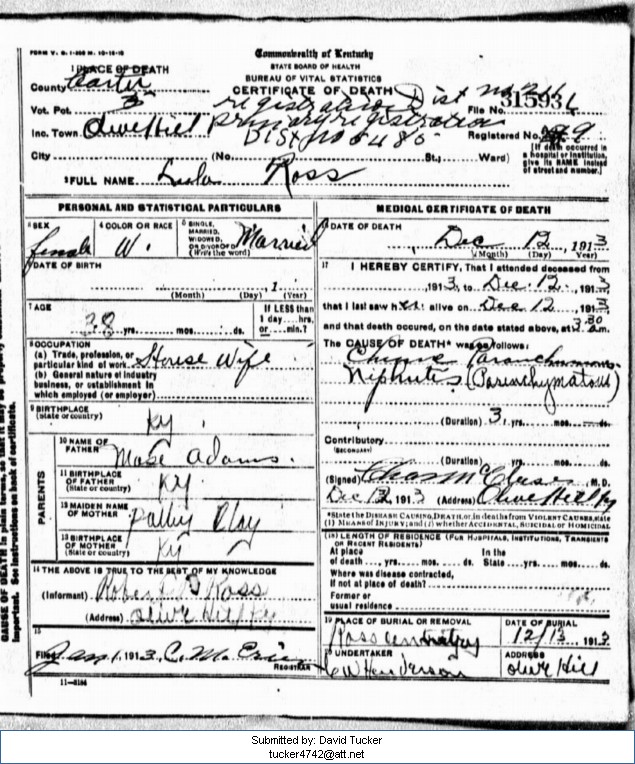 FORM V. S. 1-300 M. 10-15-10
Commonwealth of Kentucky
STATE BOARD OF HEALTH
BUREAU OF VITAL STATISTICS
CERTIFICATE OF DEATH
1 PLACE OF DEATH
County Carter
Vot. Pct. 3
registration Dist
File No. 31593
primary registration
Inc. Town Olive Hill
Dist no 6485
Registered No. 9
City (No. St.; Ward)
[If death occurred in a hospital or institution, give its NAME instead of street and number.]
2 FULL NAME Lula Ross
PERSONAL AND STATISTICAL PARTICULARS
3 SEX
female
4 COLOR OR RACE
W.
5 SINGLE, MARRIED, WIDOWED, OR DIVORCED (Write the word)
Married
6 DATE OF BIRTH
, 1
(Month) (Day) (Year)
7 AGE
38 yrs. mos. ds.
If LESS than 1 day.... hrs. or.... min.?
8 OCCUPATION
(a) Trade, profession, or particular kind of work House Wife
(b) General nature of industry business, or establishment in which employed (or employer)
9 BIRTHPLACE (State or country) Ky.
PARENTS
10 NAME OF FATHER Mase Adams.
11 BIRTHPLACE OF FATHER (State or country) Ky.
12 MAIDEN NAME OF MOTHER Clay
13 BIRTHPLACE OF MOTHER (State or country) Ky
14 THE ABOVE IS TRUE TO THE BEST OF MY KNOWLEDGE
(Informant) Robert Ross
(Address) Olive Hill Ky
15
Filed Jan 1, 1913, C. M.
REGISTRAR
11-3184
MEDICAL CERTIFICATE OF DEATH
16 DATE OF DEATH
Dec 12, 1913
(Month) (Day) (Year)
17 I HEREBY CERTIFY, That I attended deceased from
1913, to Dec. 12, 1913
that I last saw her alive on Dec 12, 1913
and that death occured, on the date stated above, at 3.30 am.
The CAUSE OF DEATH* was as follows:
Nephritis (Parenchymatous)
(Duration) 3 yrs. mos. ds.
Contributory
(SECONDARY)
(Duration) yrs. mos. ds.
(Signed) M. D.
Dec 12, 1913 (Address) Olive Hill Ky
*State the DISEASE CAUSING DEATH, or, in deaths from VIOLENT CAUSES, state (1) MEANS OF INJURY; and (2) whether ACCIDENTAL, SUICIDAL or HOMICIDAL
18 LENGTH OF RESIDENCE (FOR HOSPITALS, INSTITUTIONS, TRANSIENTS OR RECENT RESIDENTS)
At place of death yrs. mos. ds. In the State yrs. mos. ds.
Where was disease contracted, if not at place of death?
Former or usual residence
19 PLACE OF BURIAL OR REMOVAL
Ross
DATE OF BURIAL
12/13 1913
20 UNDERTAKER
C W Henderson
ADDRESS
Olive Hill
CAUSE OF DEATH in plain terms, so that it may be properly
important. See instructions on back of certificate.
Submitted by: David Tucker
tucker4742@att.net